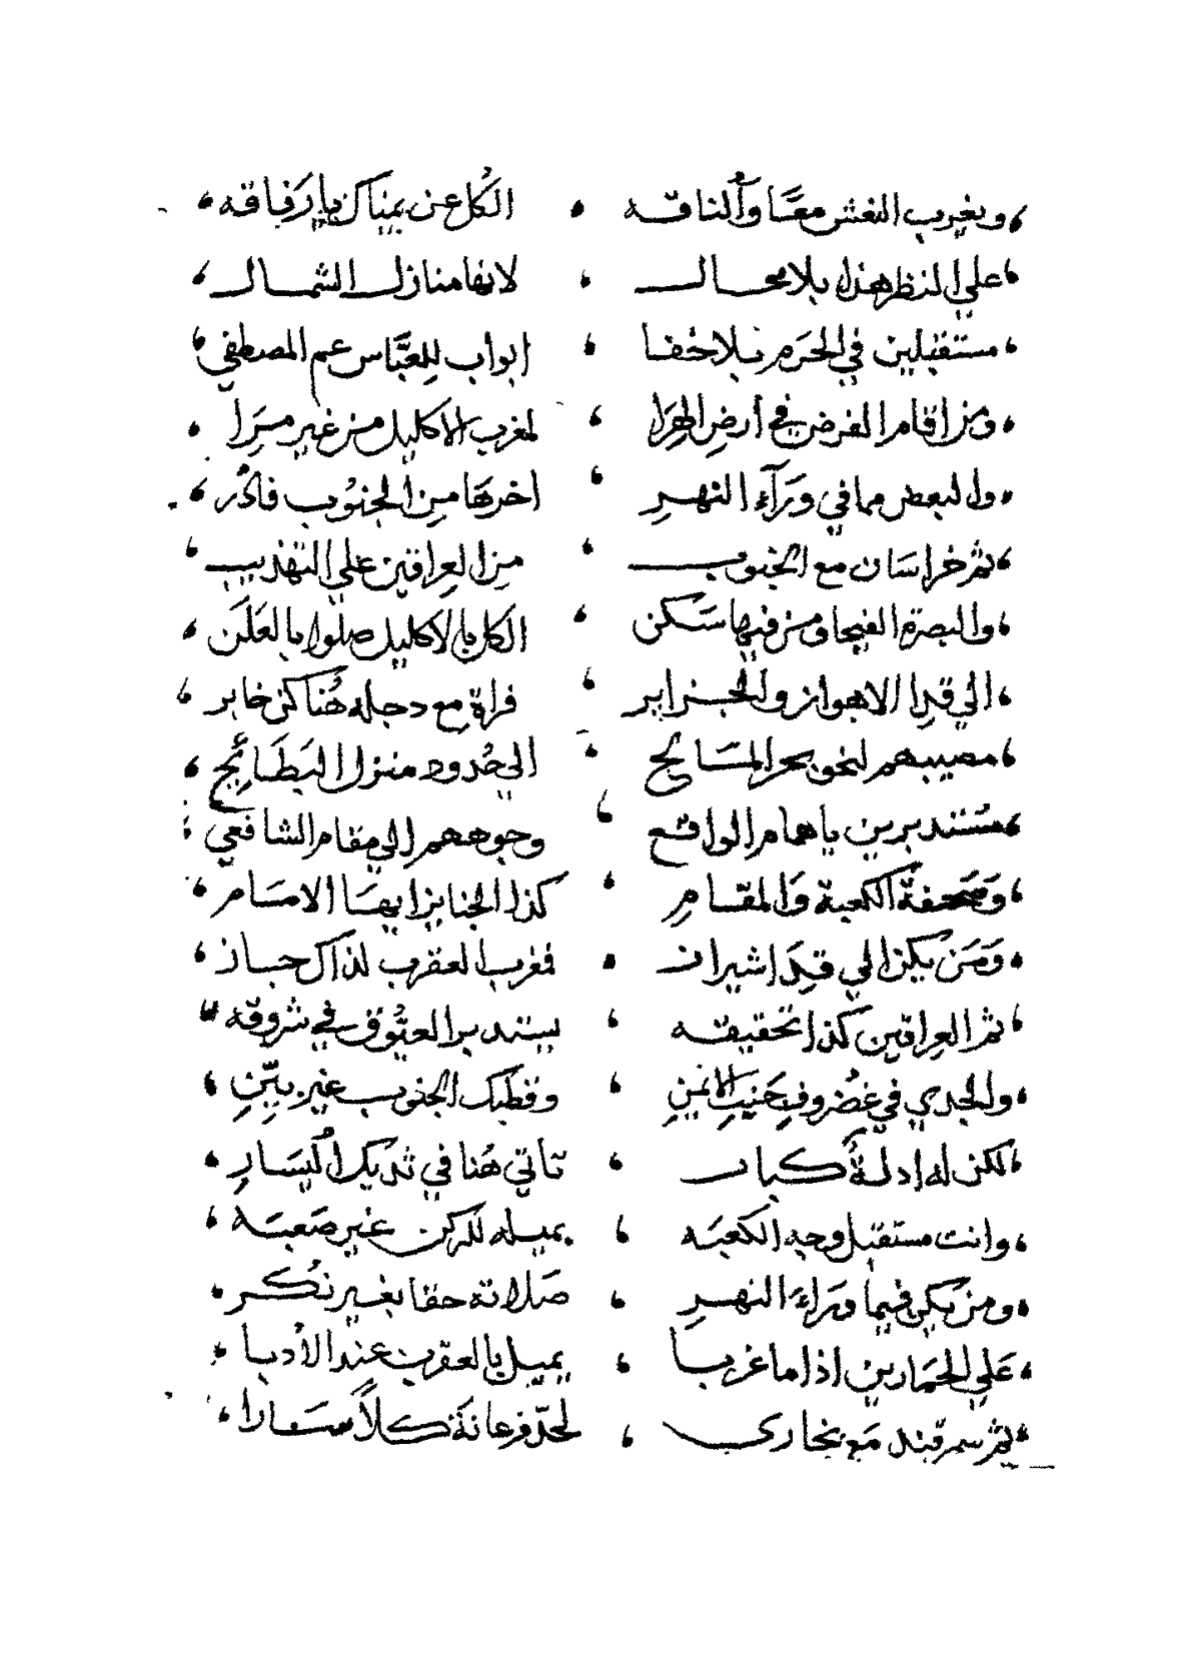 ومغيب النعش معًا والناقه ، الكل عن يمناك يا رفاقه
علي النظر هذا بلا محال ، لانها منازل الشمال
مستقبلين في الحرم بلا خفا ، ابواب للعبّاس عم المصطفي
ومن اقام الفرض في أرض الهرا ، لمغرب الاكليل من غير مرا
والبعض مما في ورآء النهر ، اخرها من الجنوب فادر
ثم خراسان مع الجنوب ، من العراقين علي التهذيب
والبصرة الفيحا ومن فيها سكن ، الكل بالاكليل صلوا بالعلن
الي قدا الاهواز والجزاير ، فراة مع دجله هناكن خابر
مصيبهم لنحو بحر المسايح ، الي حدود منزل البطائح
مستندبرين يا همام الواقع ، وجوههم الي مقام الشافعي
وصحفة الكعبة والمقام ، كذا الجنايز ايها الامام
ومن يكن الي قدا شيراز ، فغرب العقرب لذاك حاز
ثم العراقين كذا تحقيقه ، يستدبر العيّوق في شروقه
والجدي في غضروف جنب الايمن ، وقطبك الجنوب غير بيّن
لكن له ادلة كبار ، تاتي هنا في ثديك اليسار
وانت مستقبل وجه الكعبه ، بميله للركن غير صعبه
ومن يكن فيما وراء النهر ، صلاته حقا بغير نكر
علي الحمارين اذا ما غربا ، يميل بالعقرب عند الأدبا
ثم سمرقند مع بخاري ، لحدّ فرغانة كلاً سارا